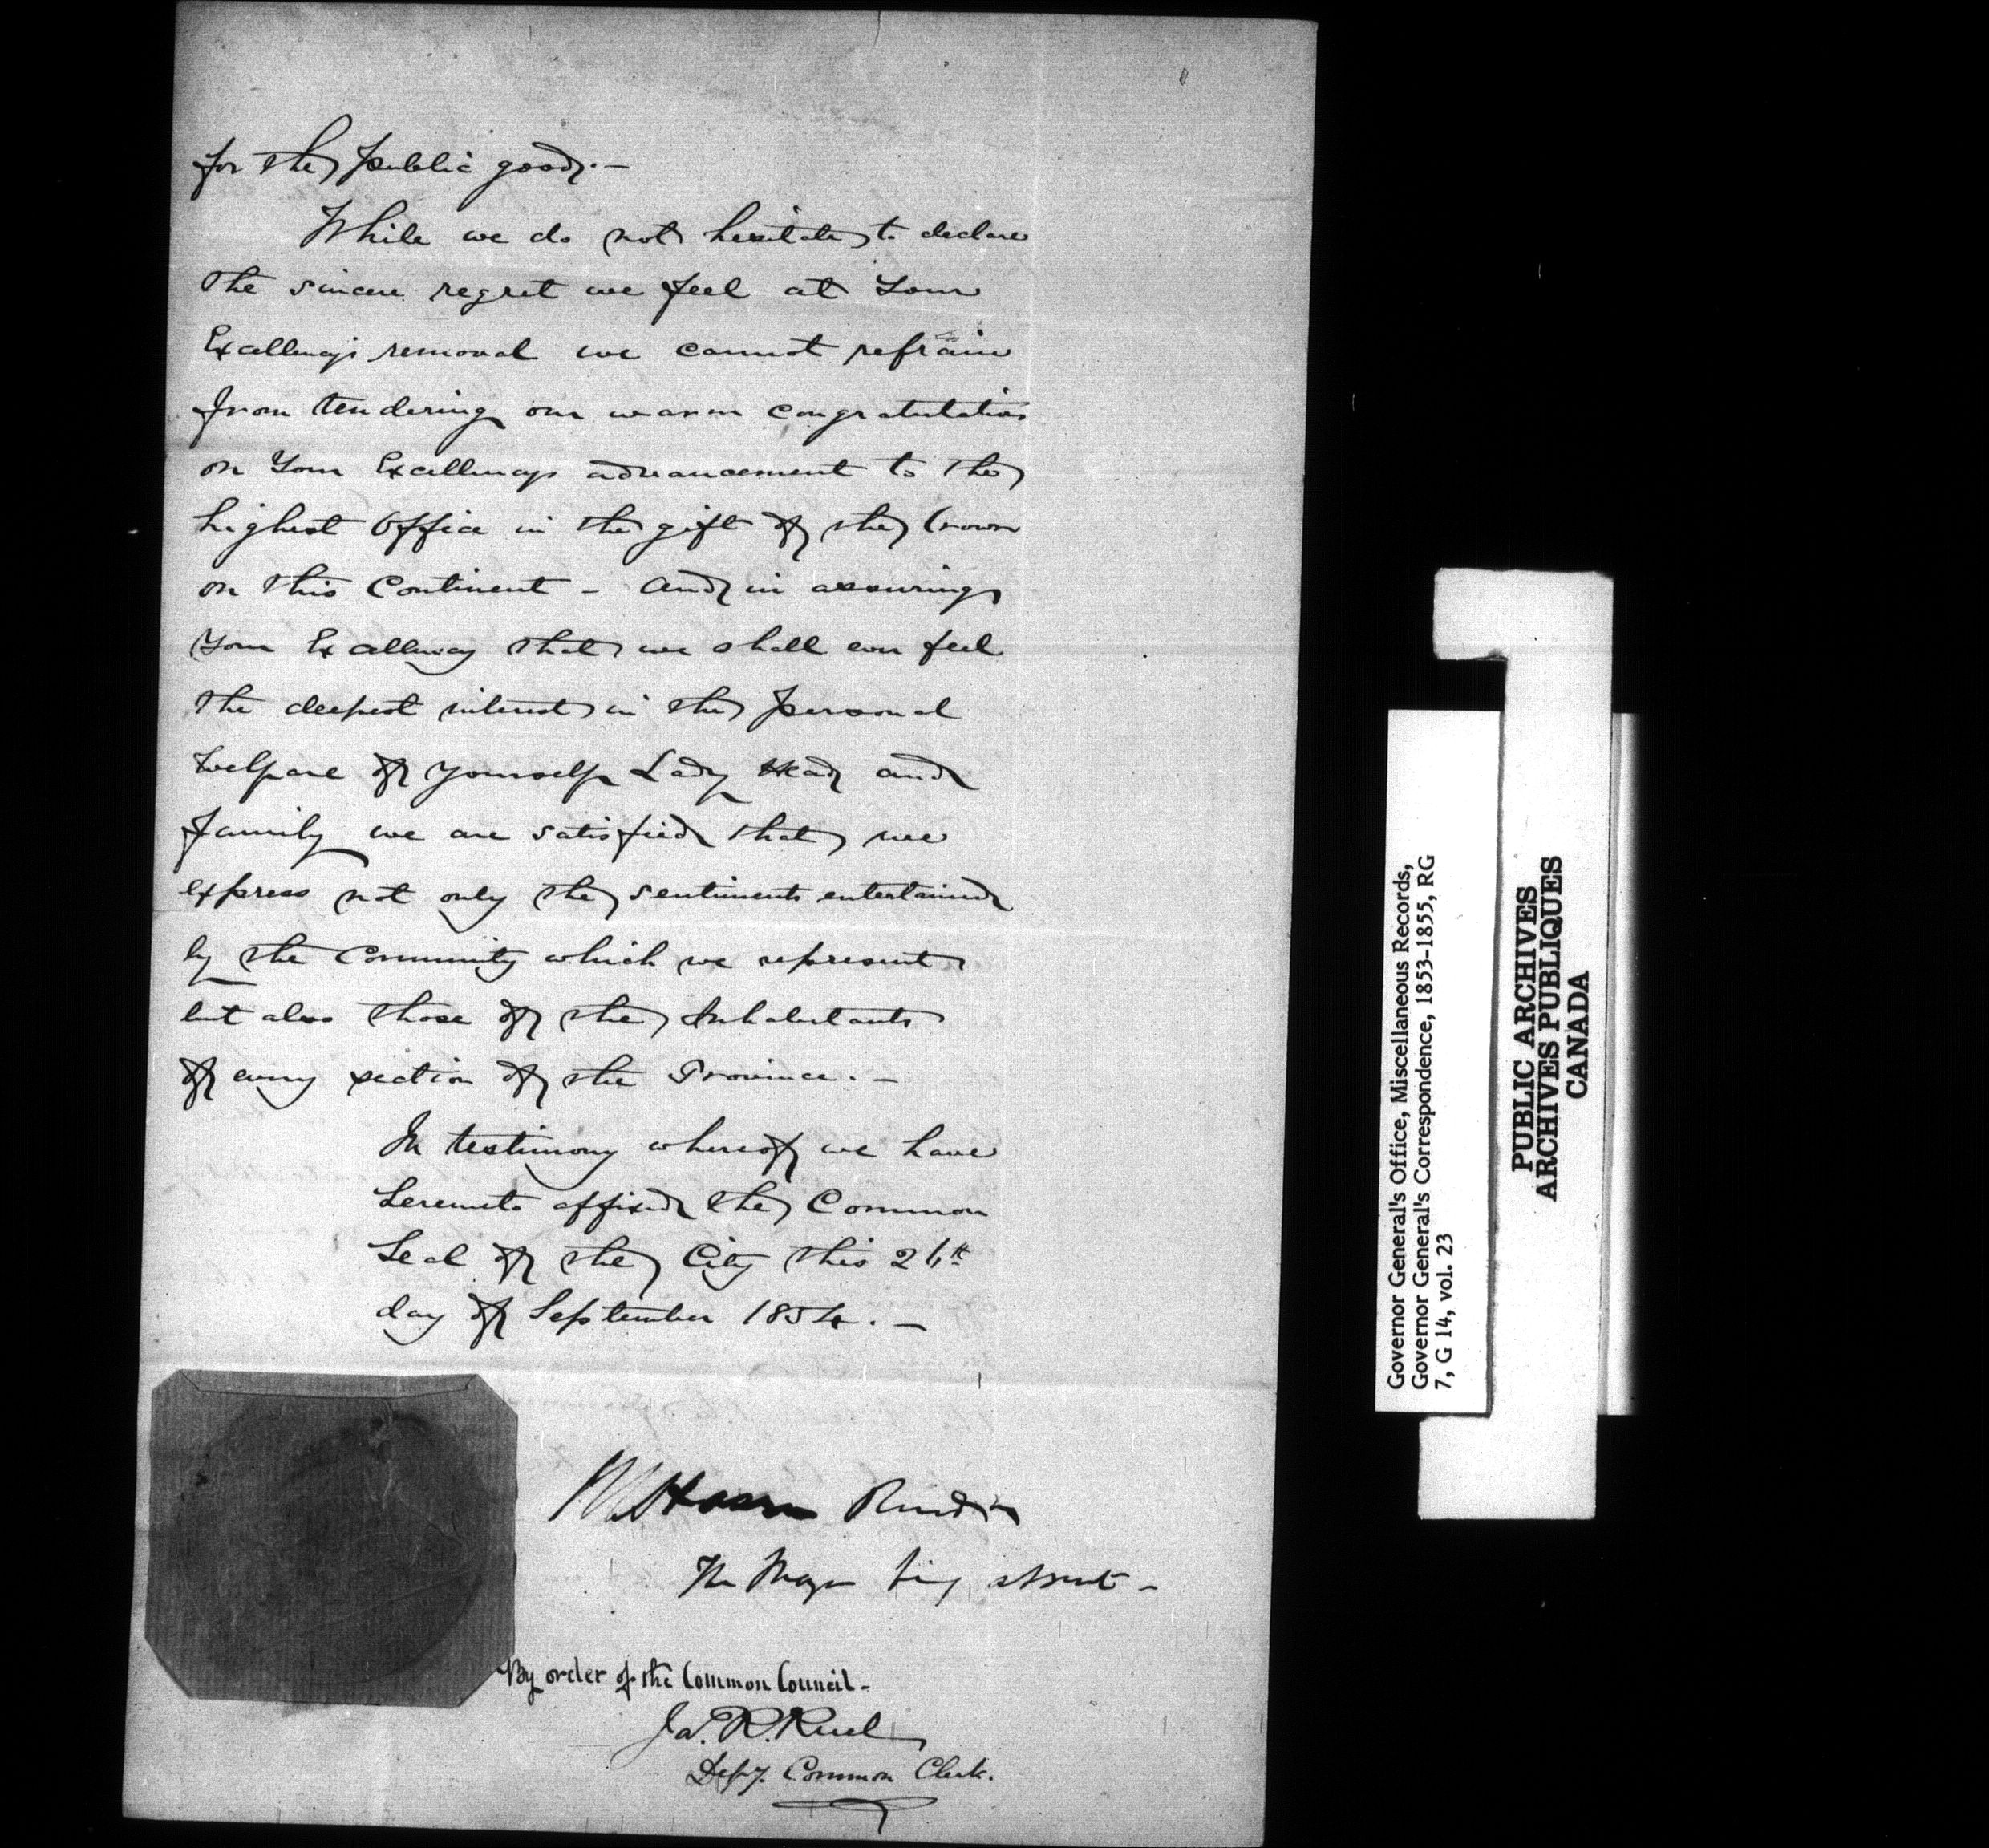 for the public good. —
While we do not hesitate to declare
the sincere regret we feel at Your
Excellency's removal we cannot refrain
from tendering our warm congratulations
on Your Excellencys advancement to the
highest Office in the gift of the Crown
on this Continent - and in assuring
Your Excellency that we shall ever feel
the deepest interest in the personal
welfare of yourself Lady Head and
family we are satisfied that we
express not only the sentiments entertained
by the Community which we represent
but also those of the Inhabitants
of every section of the Province. —
In testimony whereof we have
hereunto affixed the Common
Seal of the City this 26th
day of September 1854. —
The Mayor being absent -
By order of the Common Council -
Jas. R. Ruel
Depy. Common Clerk.
Governor General's Office, Miscellaneous Records,
Governor General's Correspondence, 1853-1855, RG
7, G 14, vol. 23
PUBLIC ARCHIVES
ARCHIVES PUBLIQUES
CANADA